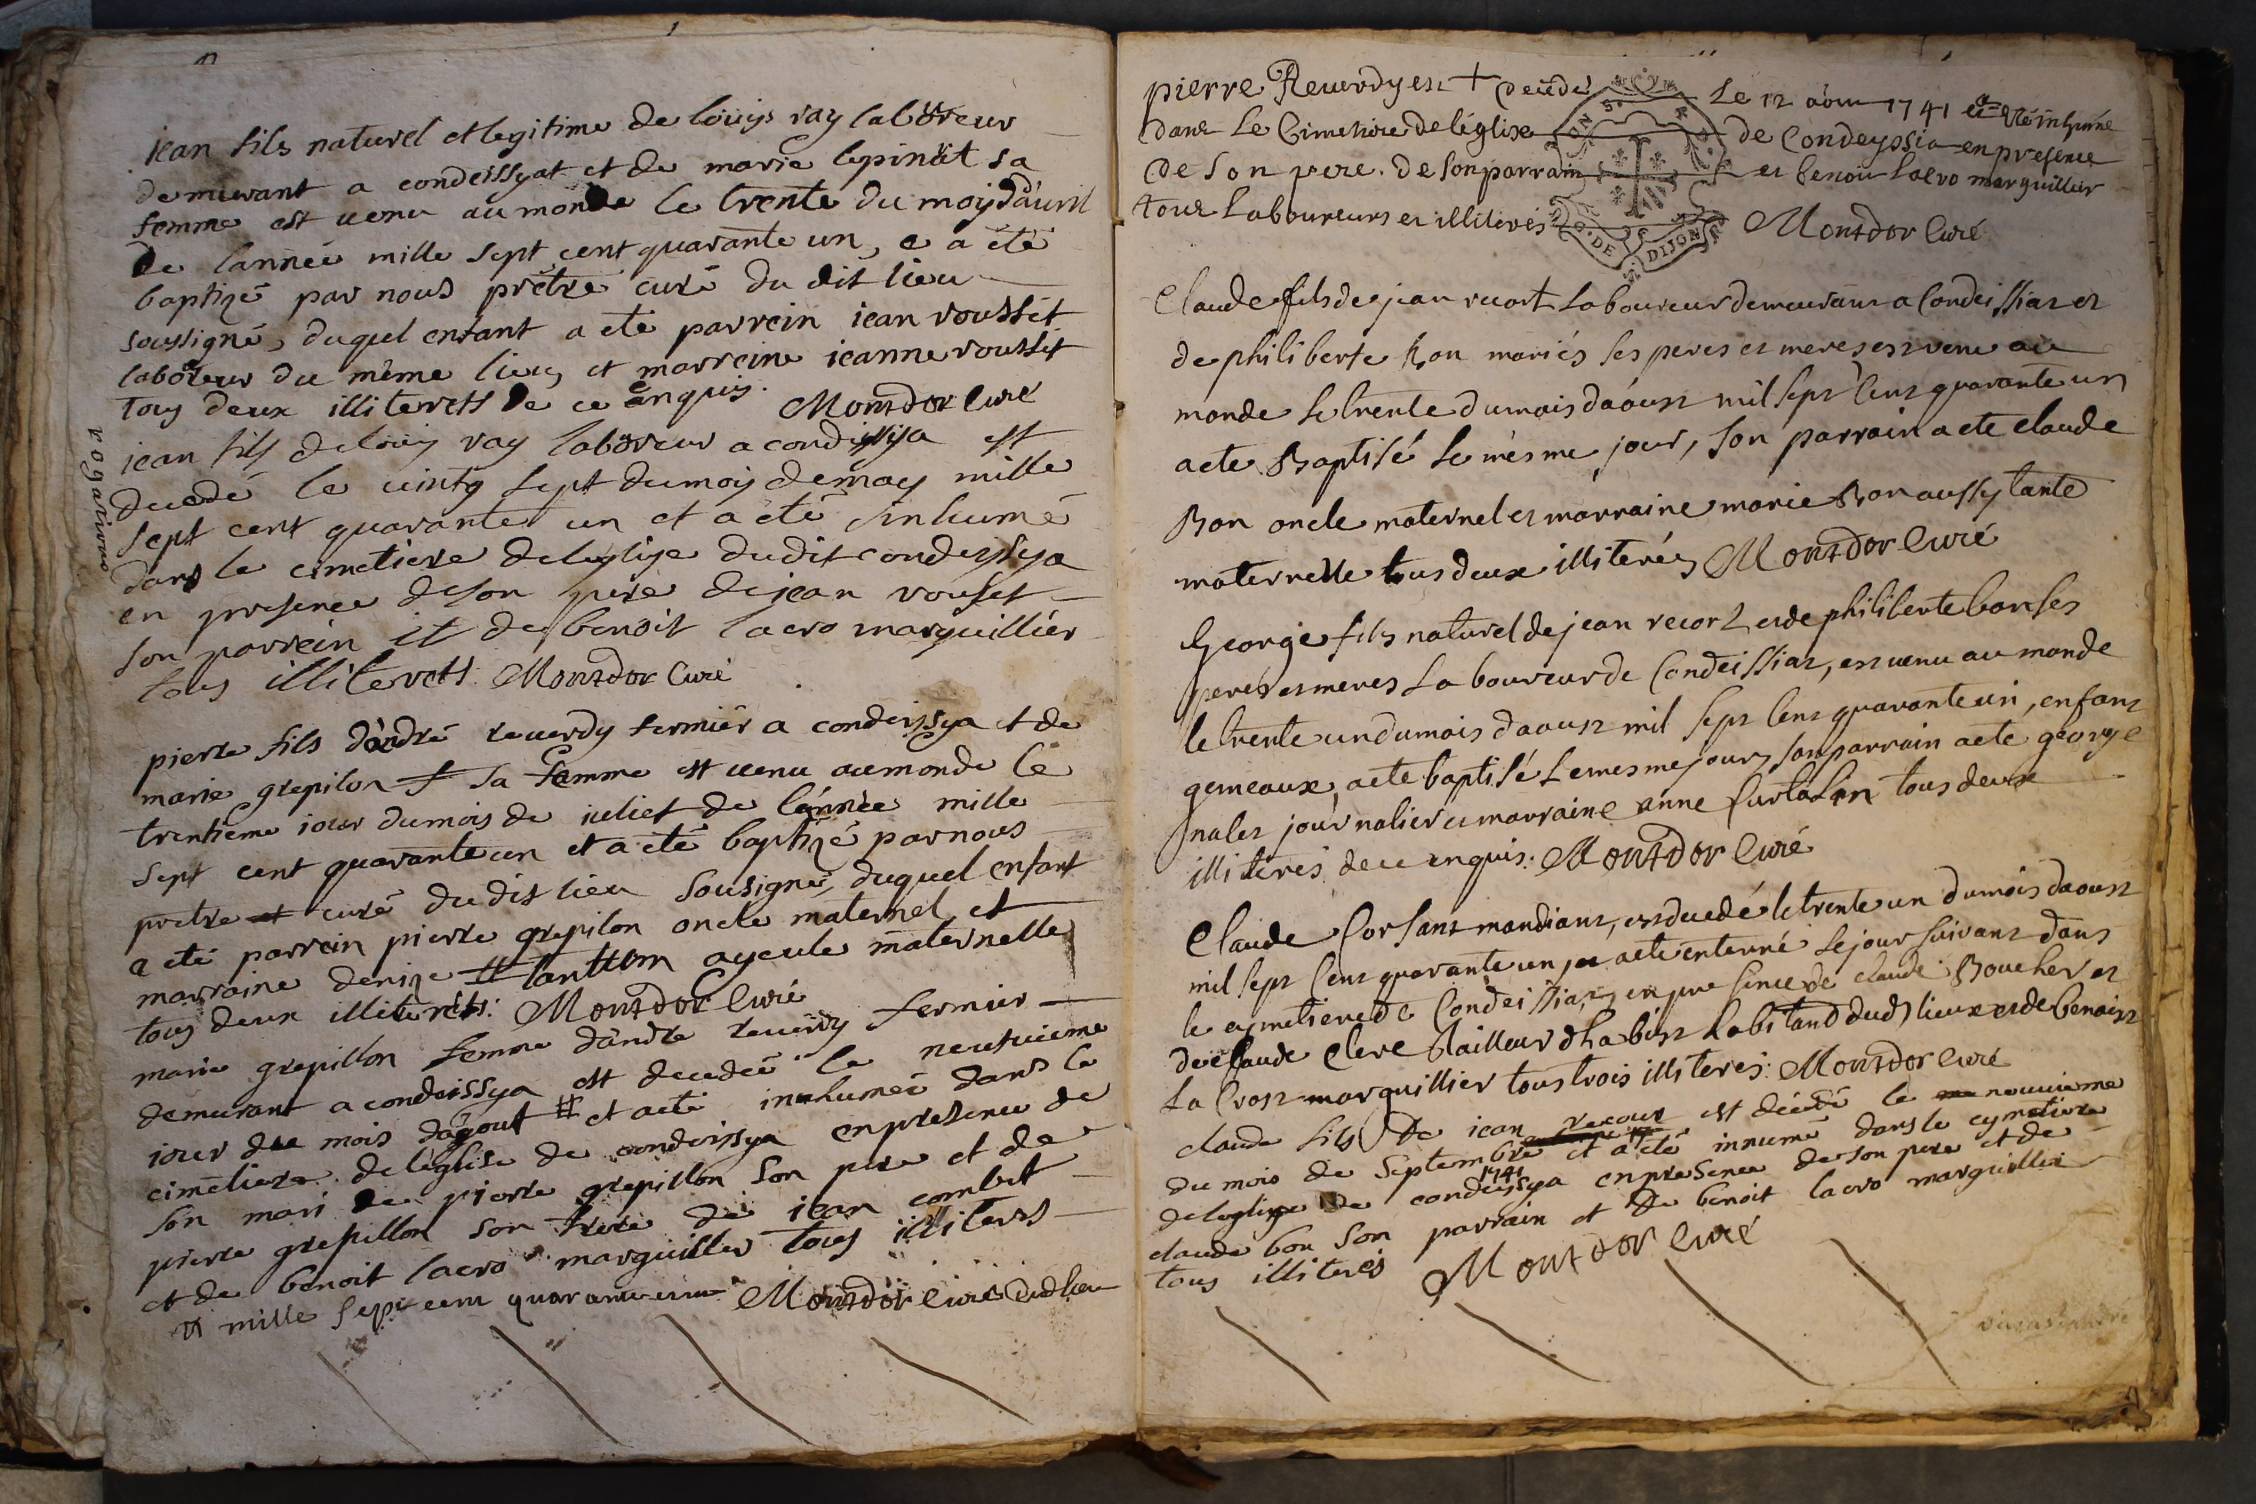 jean fils naturel et legitime de loüys ray laboreur
demurant a condeissyat et de marie lepinät sa
femme est uenu au monde le trente du moys d'auril
de lannéé mille sept cent quarante un, e a été
baptizé par nous prétre curé du dit lieu
soussigné, duquel enfant a eté parrein jean rousset
laboreur du méme lieu, et marreine jeanne rousset
tous deux illiterets de ce enquis. Montdor Curé
jean fils de loüy ray laboreur a condissya est
decedé le uintg sept du moy de may mille
sept cent quarante un et a été inhumé
dans le cimetiere de leglise dudit condeyssya
en presence de son pere de jean rouset
son parrein et de benoit lacro marguillier
tous illiterets Montdor Curé
pierre fils d'andré reuerdy fermiér a condeissya et de
marie grepilon sa femme est uenu au monde le
trentieme jour du mois de juliet de lánnéé mille
sept cent quarante un et a eté baptizé par nous
pretre curé du dit lieu sousigné, duquel enfant
a eté parrein pierre grepilon oncle maternel et
marraine denize ayeule maternelle
tous deux illiterets: Montdor Curé
marie grepillon femme d'andre reuerdy fermier
demurant a condeissya est decedéé le neufuieme
jour du mois dagout # et a eté inhuméé dans le
cimetiere de leglise de condeissya en presence de
son mari de pierre grepillon son pere et de
pierre grepillon son frere de jean combet
et de benoit lacro marguiller tous illiters
# mille sept cent quarante un Montdor Curé dud lieu
pierre Reuerdy est + decedé Le 12 aout 1741 et a eté inhumé
dans Le Cimetiere de léglise de Condeyssia en presence
de Son pere. de Son parrain et benoit Lacro marguillier
tous Laboureurs et illiterés Montdor Curé
ON S.
G. DE DIJON
Claude fils de jean recort Laboureur demeurant a Condeissiat et
de philiberte Bon mariés ses peres et meres est venu au
monde le trente du mois d'aoust mil sept Cent quarante un
a eté Baptisé le mésme jour, son parrain a eté claude
Bon oncle maternel et marraine marie Bon aussy tante
maternelle tous deux illiterés Montdor Curé
George fils naturel de jean recort et de philiberte bon ses
peres et meres Laboureur de Condeissiat, est uenu au monde
le trente un du mois daoust mil sept Cent quarante un, enfant
gemeaux, a eté baptisé le mesme jour, son parrain a eté george
nalet journalier et marraine anne tous deux
illiterés de ce enquis: Montdor Curé
Claude Corsant mandiant, est decedé le trente un du mois daoust
mil sept Cent quarante un, a eté enterré le jour suivant dans
le cymetiere de Condeissiat, en presence de claude Boucher et
de claude Clere tailleur d'habist habitand dud lieux et de benoist
La Crost marguillier tous trois illiteres: Montdor Curé
claude fils de jean recour est décedé le nouuieme
du mois de Septembre 1741 et a eté innumé dans le cymetiere
de leglize de condeissya en presence de son pere et de
claude bon son parrain et de benoit lacro marguillier
tous illiterés Montdor Curé